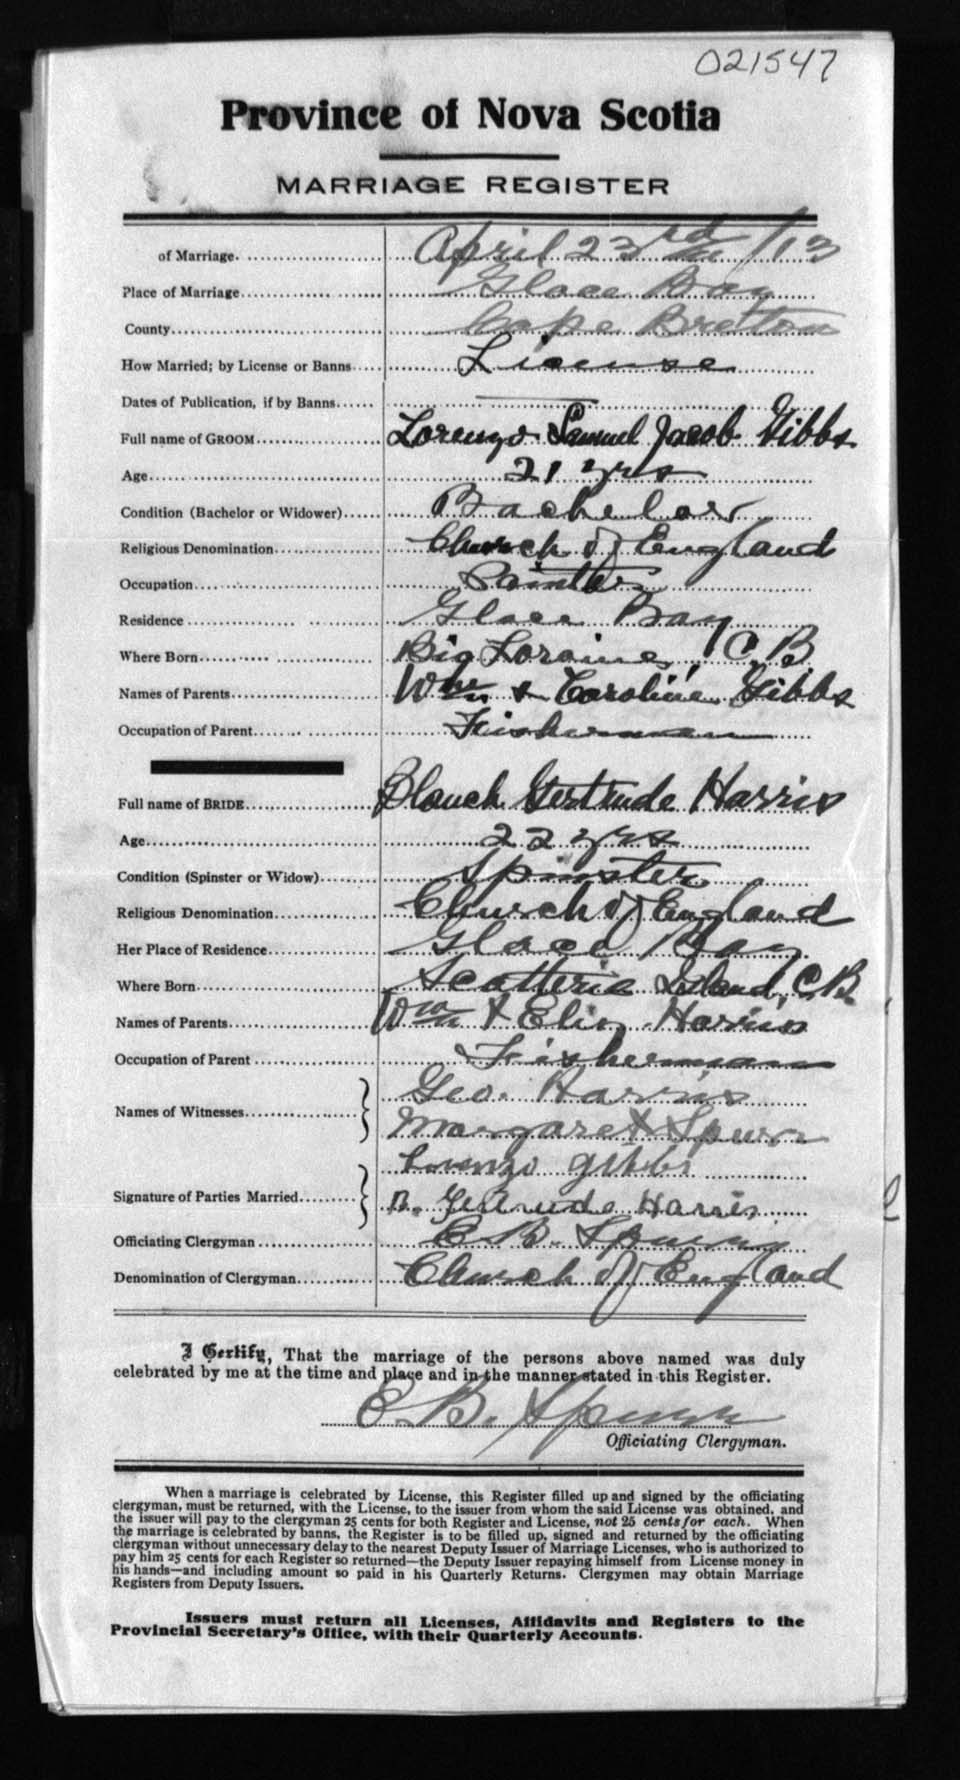 021547
Province of Nova Scotia
MARRIAGE REGISTER
of Marriage. April 23rd /13
Place of Marriage. Glace Bay
County. Cape Bretton
How Married; by License or Banns. License
Dates of Publication, if by Banns. ———
Full name of GROOM. Lorenzo Samuel Jacob Gibbs
Age. 21 yrs
Condition (Bachelor or Widower). Bachelor
Religious Denomination. Church of England
Occupation. Painter
Residence. Glace Bay
Where Born. Big Loraine, C.B
Names of Parents. Wm & Caroline Gibbs
Occupation of Parent. Fisherman
Full name of BRIDE. Blanch Gertrude Harris
Age. 22 yrs
Condition (Spinster or Widow). Spinster
Religious Denomination. Church of England
Her Place of Residence. Glace Bay
Where Born. Scatterie Island, C.B.
Names of Parents. Wm & Eliz Harris
Occupation of Parent. Fisherman
Geo. Harris
Names of Witnesses.
Margaret Spurr
Lorenzo Gibbs
Signature of Parties Married.
B. Gertrude Harris
Officiating Clergyman. E. B.
Denomination of Clergyman. Church of England
I Certify, That the marriage of the persons above named was duly
celebrated by me at the time and place and in the manner stated in this Register.
E. B. Spurr
Officiating Clergyman.
When a marriage is celebrated by License, this Register filled up and signed by the officiating
clergyman, must be returned, with the License, to the issuer from whom the said License was obtained, and
the issuer will pay to the clergyman 25 cents for both Register and License, not 25 cents for each. When
the marriage is celebrated by banns, the Register is to be filled up, signed and returned by the officiating
clergyman without unnecessary delay to the nearest Deputy Issuer of Marriage Licenses, who is authorized to
pay him 25 cents for each Register so returned—the Deputy Issuer repaying himself from License money in
his hands—and including amount so paid in his Quarterly Returns. Clergymen may obtain Marriage
Registers from Deputy Issuers.
Issuers must return all Licenses, Affidavits and Registers to the
Provincial Secretary's Office, with their Quarterly Accounts.